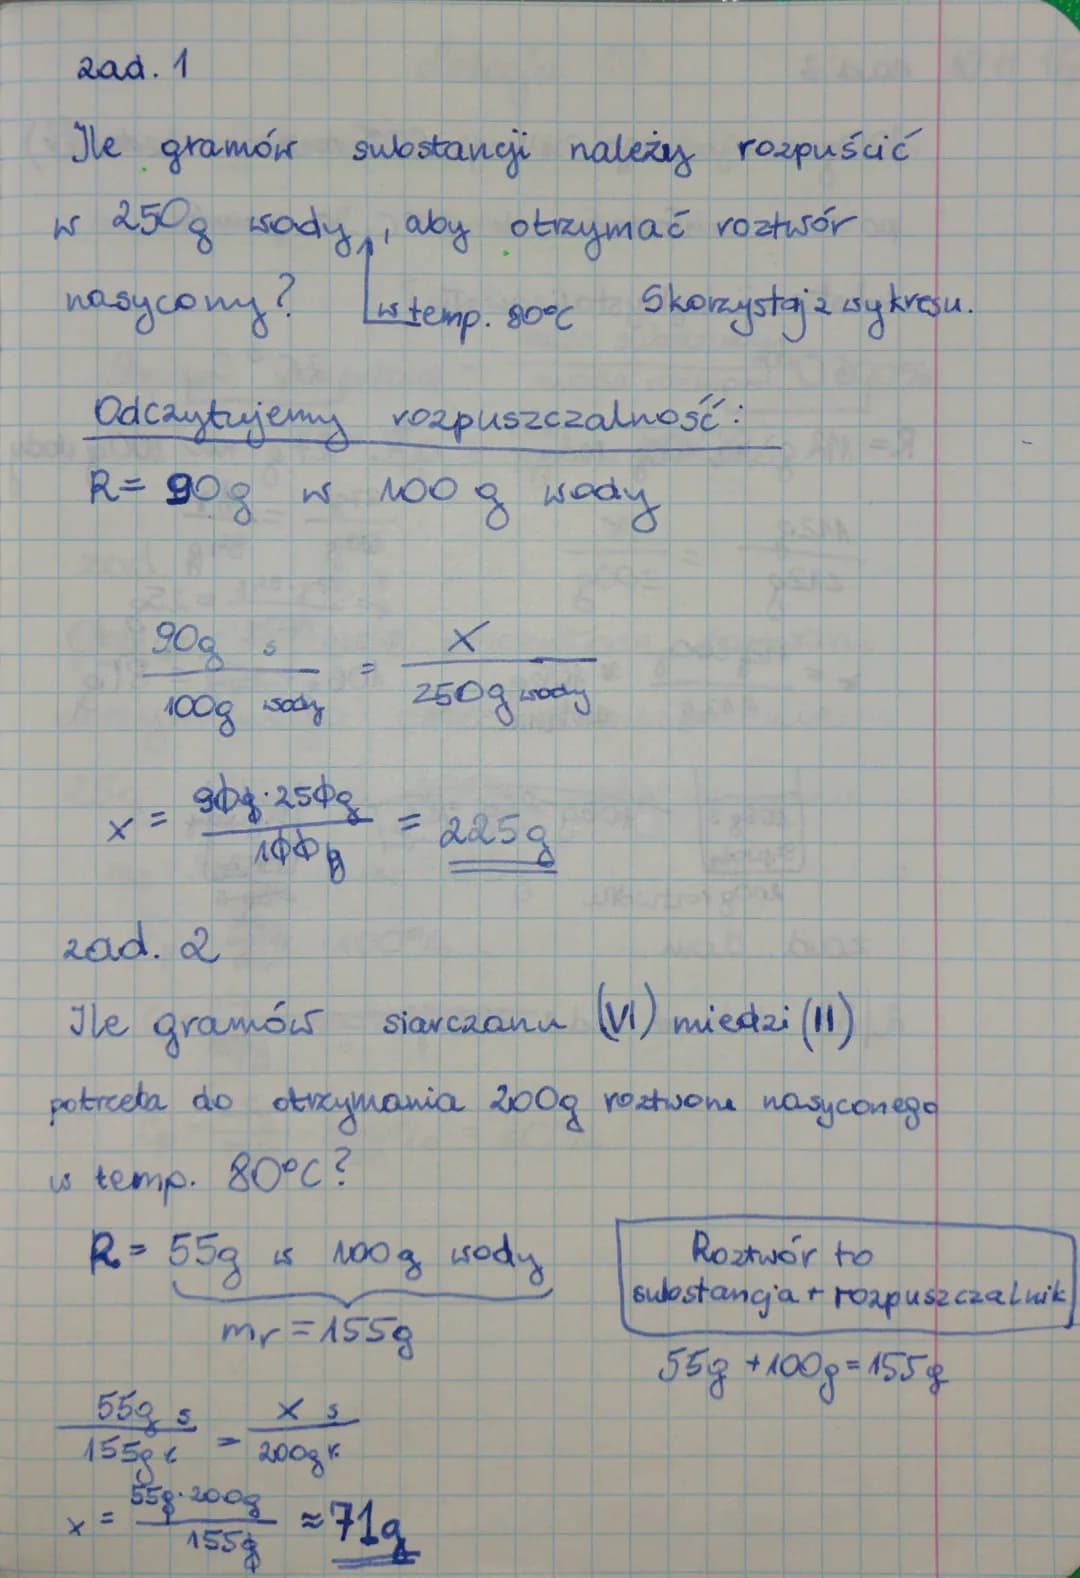 zad. 1
Ile gramów substancji należy rozpuścić
w 250g wody, aby otrzymać roztwór
nasycony? w temp. 80°C Skorzystaj z wykresu.
Odczytujemy rozpuszczalność:
R= 90g w 100g wody
90g s / 100g wody = x / 250g wody
x = 90g·250g / 100g = 225g
zad. 2
Ile gramów siarczanu (VI) miedzi (II)
potrzeba do otrzymania 200g roztworu nasyconego
w temp. 80°C?
R= 55g w 100g wody
mr = 155g
Roztwór to
substancja + rozpuszczalnik
55g + 100g = 155g
55g s / 155g r. = x s / 200g r.
x = 55g·200g / 155g ≈ 71g